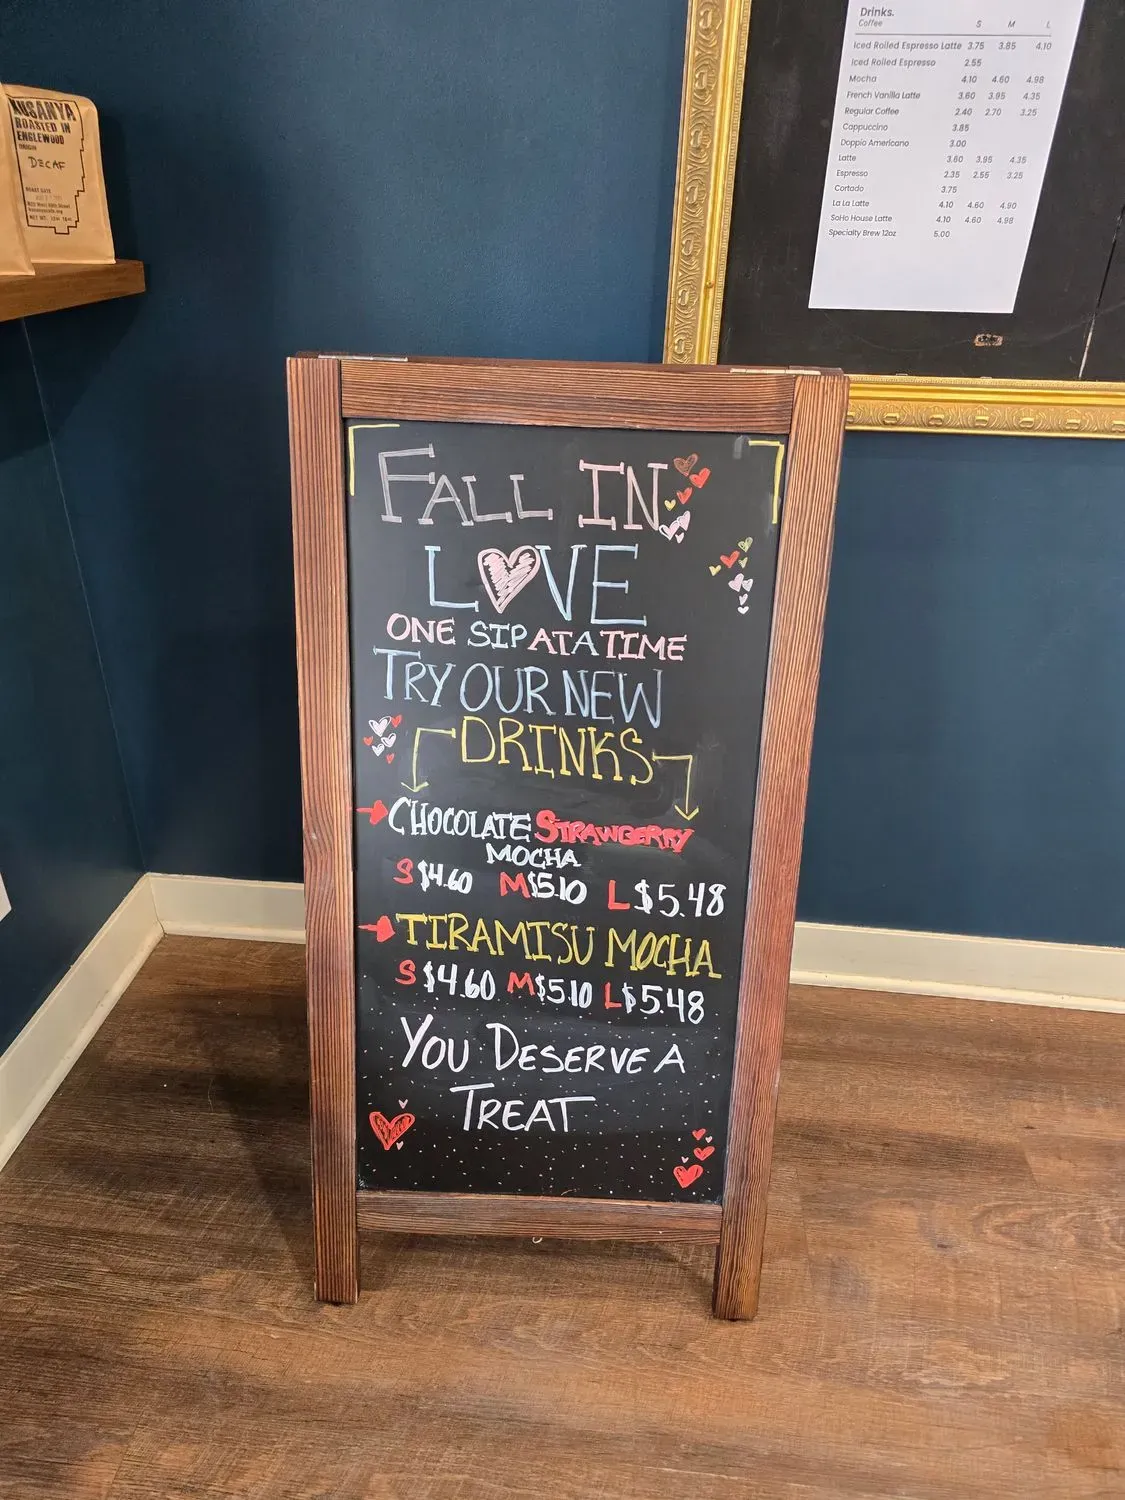 KUSANYA
ROASTED IN
ENGLEWOOD
DECAF
ROAST DATE
Drinks.
Coffee S M L
Iced Roiled Espresso Latte 3.75 3.85 4.10
Iced Roiled Espresso 2.55
Mocha 4.10 4.60 4.98
French Vanilla Latte 3.60 3.95 4.35
Regular Coffee 2.40 2.70 3.25
Cappuccino 3.85
Doppio Americano 3.00
Latte 3.60 3.95 4.35
Espresso 2.35 2.55 3.25
Cortado 3.75
La La Latte 4.10 4.60 4.90
SoHo House Latte 4.10 4.60 4.98
Specialty Brew 12oz 5.00
FALL IN
LOVE
ONE SIP AT A TIME
TRY OUR NEW
DRINKS
CHOCOLATE STRAWBERRY
MOCHA
S $4.60 M $5.10 L $5.48
TIRAMISU MOCHA
S $4.60 M $5.10 L $5.48
YOU DESERVE A
TREAT